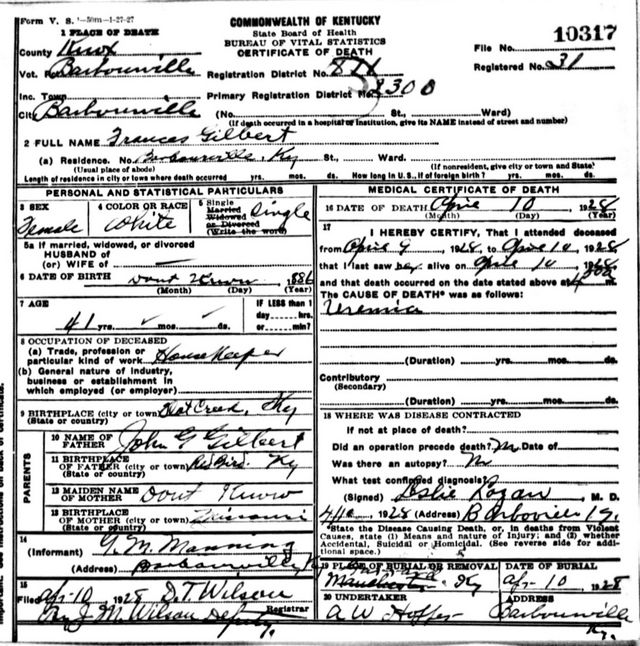 Form V. S. 1-50m-1-27-27
COMMONWEALTH OF KENTUCKY
State Board of Health
BUREAU OF VITAL STATISTICS
CERTIFICATE OF DEATH
1 PLACE OF DEATH
County Knox
File No. 10317
Vot. Barbourville
Registration District No.
Registered No. 31
Inc. Town
Primary Registration District No.
City Barbourville (No. St., Ward)
(If death occurred in a hospital or institution, give its NAME instead of street and number)
2 FULL NAME Frances Gilbert
(a) Residence. No. Barbourville, Ky St., Ward.
(Usual place of abode) (If nonresident, give city or town and State)
Length of residence in city or town where death occurred yrs. mos. ds. How long in U. S., if of foreign birth? yrs. mos. ds.
PERSONAL AND STATISTICAL PARTICULARS
3 SEX Female
4 COLOR OR RACE White
5 Single Married Widowed or Divorced (Write the word) Single
5a If married, widowed, or divorced
HUSBAND of
(or) WIFE of —
6 DATE OF BIRTH Dont Know 1886
(Month) (Day) (Year)
7 AGE 41 yrs. mos. ds.
IF LESS than 1 day ---- hrs. or ---- min?
8 OCCUPATION OF DECEASED
(a) Trade, profession or particular kind of work House Keeper
(b) General nature of industry, business or establishment in which employed (or employer)
9 BIRTHPLACE (city or town) Creek, Ky
(State or country)
PARENTS
10 NAME OF FATHER John G Gilbert
11 BIRTHPLACE OF FATHER (city or town) Red Bird. Ky
(State or country)
12 MAIDEN NAME OF MOTHER Dont Know
13 BIRTHPLACE OF MOTHER (city or town) Missouri
(State or country)
14 (Informant) G. M. Manning
(Address) Barbourville Ky
15 Filed Apr-10 1928 D. T. Wilson
Registrar
J M Wilson Deputy
MEDICAL CERTIFICATE OF DEATH
16 DATE OF DEATH April 10 1928
(Month) (Day) (Year)
17 I HEREBY CERTIFY, That I attended deceased
from April 9 1928, to April 10 1928
that I last saw her alive on April 10 1928
and that death occurred on the date stated above at m.
The CAUSE OF DEATH* was as follows:
Uremia
(Duration) yrs. mos. ds.
Contributory
(Secondary)
(Duration) yrs. mos. ds.
18 WHERE WAS DISEASE CONTRACTED
If not at place of death?
Did an operation precede death? No Date of
Was there an autopsy? No
What test confirmed diagnosis?
(Signed) Leslie Logan M. D.
1928 (Address) Barbourville Ky.
*State the Disease Causing Death, or, in deaths from Violent Causes, state (1) Means and nature of Injury; and (2) whether Accidental, Suicidal or Homicidal. (See reverse side for additional space.)
19 PLACE OF BURIAL OR REMOVAL Manchester Ky
DATE OF BURIAL Apr-10 1928
20 UNDERTAKER A W Hopper
ADDRESS Barbourville Ky.